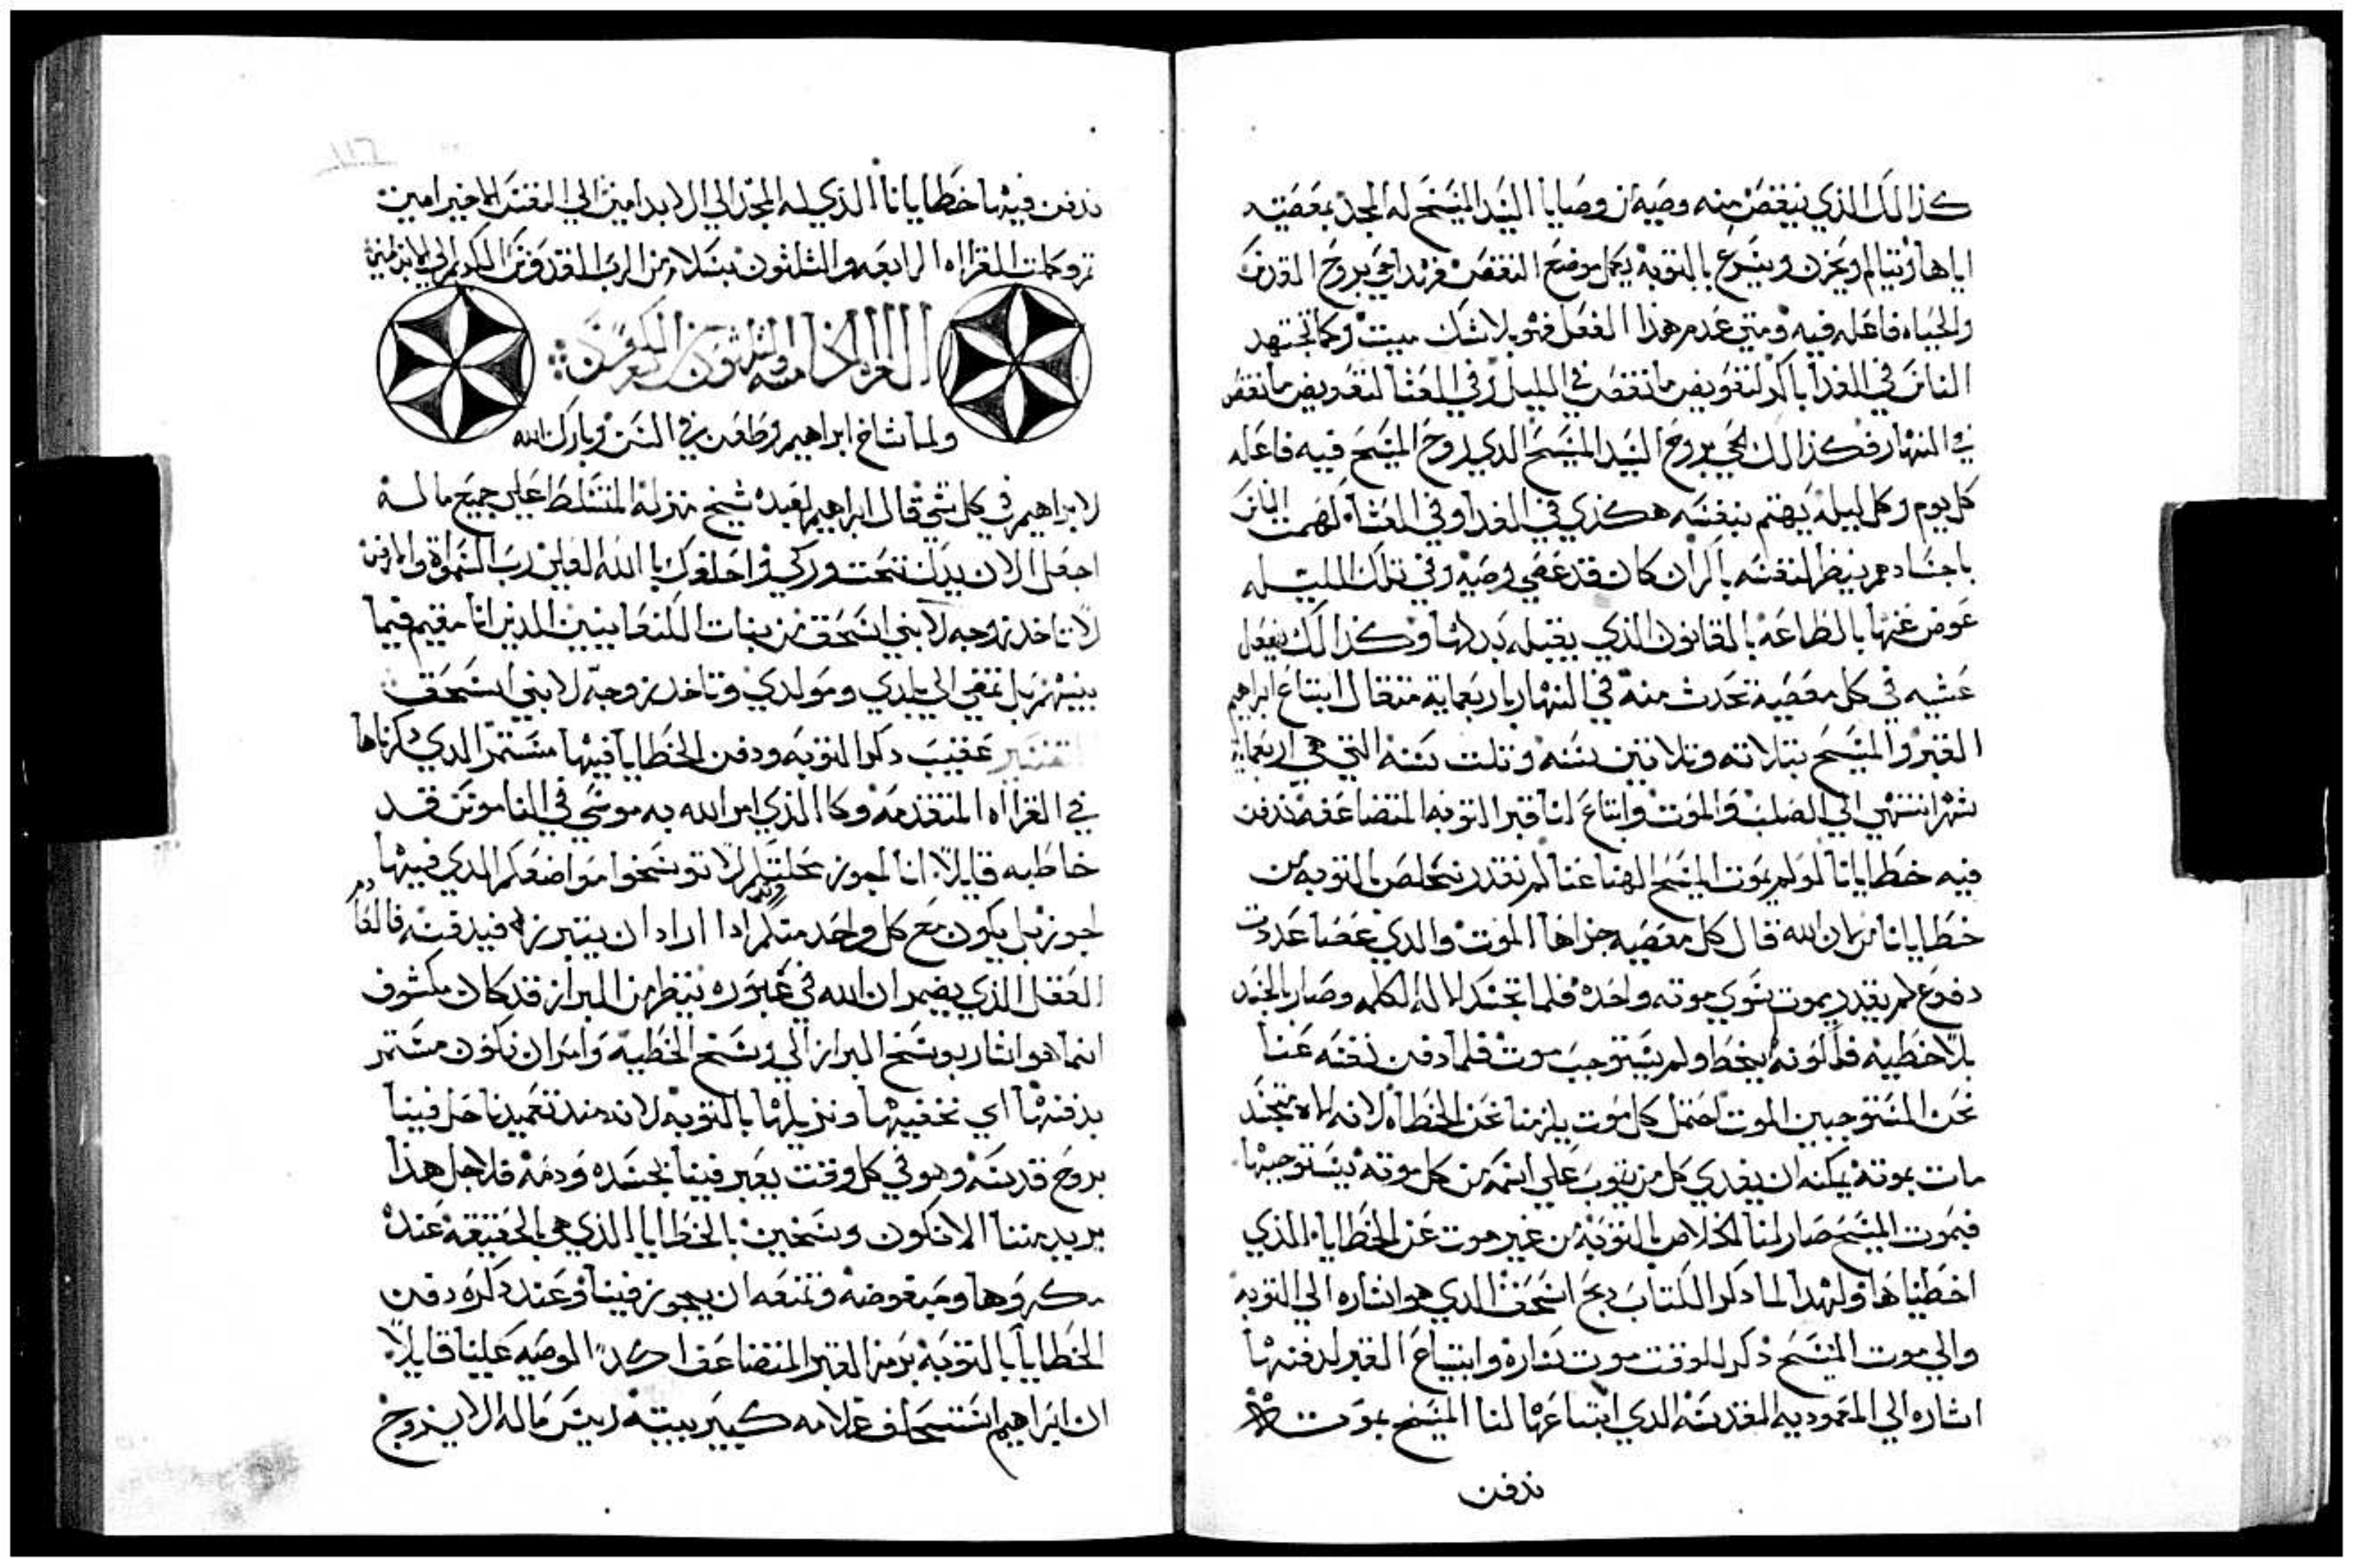 كذالك الذي ينقص منه وصيه من وصايا السيد المسيح له المجد بمعصيته
اياها ويتالم ويحزن ويسرع بالتوبه يكمل موضع النقص فهذا حي بروح القدس
والحياه فاعله فيه ومتي عدم هذا الفعل فهو بلا شك ميت وكما تجتهد
الناس في الغدا باكر لتعويض ما نقص في الليل وفي العشا لتعويض ما نقص
في النهار فكذالك الحي بروح السيد المسيح الذي روح المسيح فيه فاعله
كل يوم وكل ليله يهتم بنفسه هكذي في الغدا وفي العشا كهمت الناس
باجسادهم ينظر لنفسه باكر ان كان قد عصي وصيه وفي تلك الليله
عوض عنها بالطاعه بالقانون الذي يقبله بدلها وكذالك يفعل
عشيه في كل معصية تحدث منه في النهار باربعماية متقال ابتاع ابراهيم
القبر والمسيح بتلاته وتلاتين سنه وتلت سنه التي هي اربعمايه
شهر انتهي الي الصلب والموت وابتاع لنا قبر التوبه المتضاعفه ندفن
فيه خطايانا لو لم يموت المسيح الهنا عنا لم نقدر نتخلص بالتوبه من
خطايانا من الله قال كل معصيه جزاها الموت والذي عصا عدت
دفوع لم يقدر يموت سوي موته واحده فلما تجسد الاله الكلمه وصار بالجسد
بلا خطيه فلكونه لم يخطا ولم يستوجب موت فلما دفن نفسه عنا
نحن المستوجبين الموت احتمل كل موت يلزمنا نحن الخطاه لانه اله متجسد
مات بموته يمكنه ان يفدي كل من يتوب علي اسمه من كل موته يستوجبها
فبموت المسيح صار لنا الخلاص بالتوبه من غير موت عن الخطايا الذي
اخطيناها ولهذا لما ذكر الكتاب دبح اسحق الذي هو اشاره الي التوبه
والي موت المسيح ذكر للوقت موت ساره وابتياع القبر لدفنها
اشاره الي المعموديه المقدسه الذي ابتاعها لنا المسيح بموته
ندفن
ندفن فيها خطايانا الذي له المجد الي الابد امين الي النفس الاخير امين
تم وكملت القراه الرابعه والثلثون بسلام من الرب القدوس
القراه الخامسه والثلثون من التكوين
ولما شاخ ابراهيم وطعن في السن وبارك الله
لابراهيم في كل شي قال ابراهيم لعبده شيخ منزله المتسلط علي جميع ماله
اجعل الان يدك تحت وركي واحلفك بالله العلي رب السموات والارض
لا تاخد زوجه لابني اسحق من بنات الكنعانيين الذين انا مقيم فيما
بينهم بل تمضي الي بلدي ومولدي وتاخد زوجه لابني اسحق
التفسير عقيب ذكر التوبه ودفن الخطايا فيها مستمر الذي ذكرناها
في القراه المتقدمه وكا الذي امر الله به موسي في الناموس قد
خاطبه قايلا انا اجوز محلتكم لا توسخوا مواضعكم الذي فيها
اجوز بل يكون مع كل واحد منكم وتد اذا اراد ان يتبرز فيدفنه فالعا دم
العقل الذي يضمر ان الله في عبوره ينظر من البراز قد كان مكشوف
انما هو اشار بوسخ البراز الي وسخ الخطيه وامر ان نكون مستمر
بدفنها اي نخفيها ونزيلها بالتوبه لانه منذ تعميدنا حل فينا
بروح قدسه وهو في كل وقت يعبر فينا بجسده ودمه فلاجل هذا
يريد مننا الا نكون وسخين بالخطايا الذي هي بالحقيقه عنده
مكروها ومبغوضه وتمنعه ان يجوز فينا وعند ذكره دفن
الخطايا بالتوبه برمز القبر المتضاعف اكد الوصيه علينا قايلا
ان ابراهيم استحلف غلامه كبير بيته ريس ماله الا يزوج